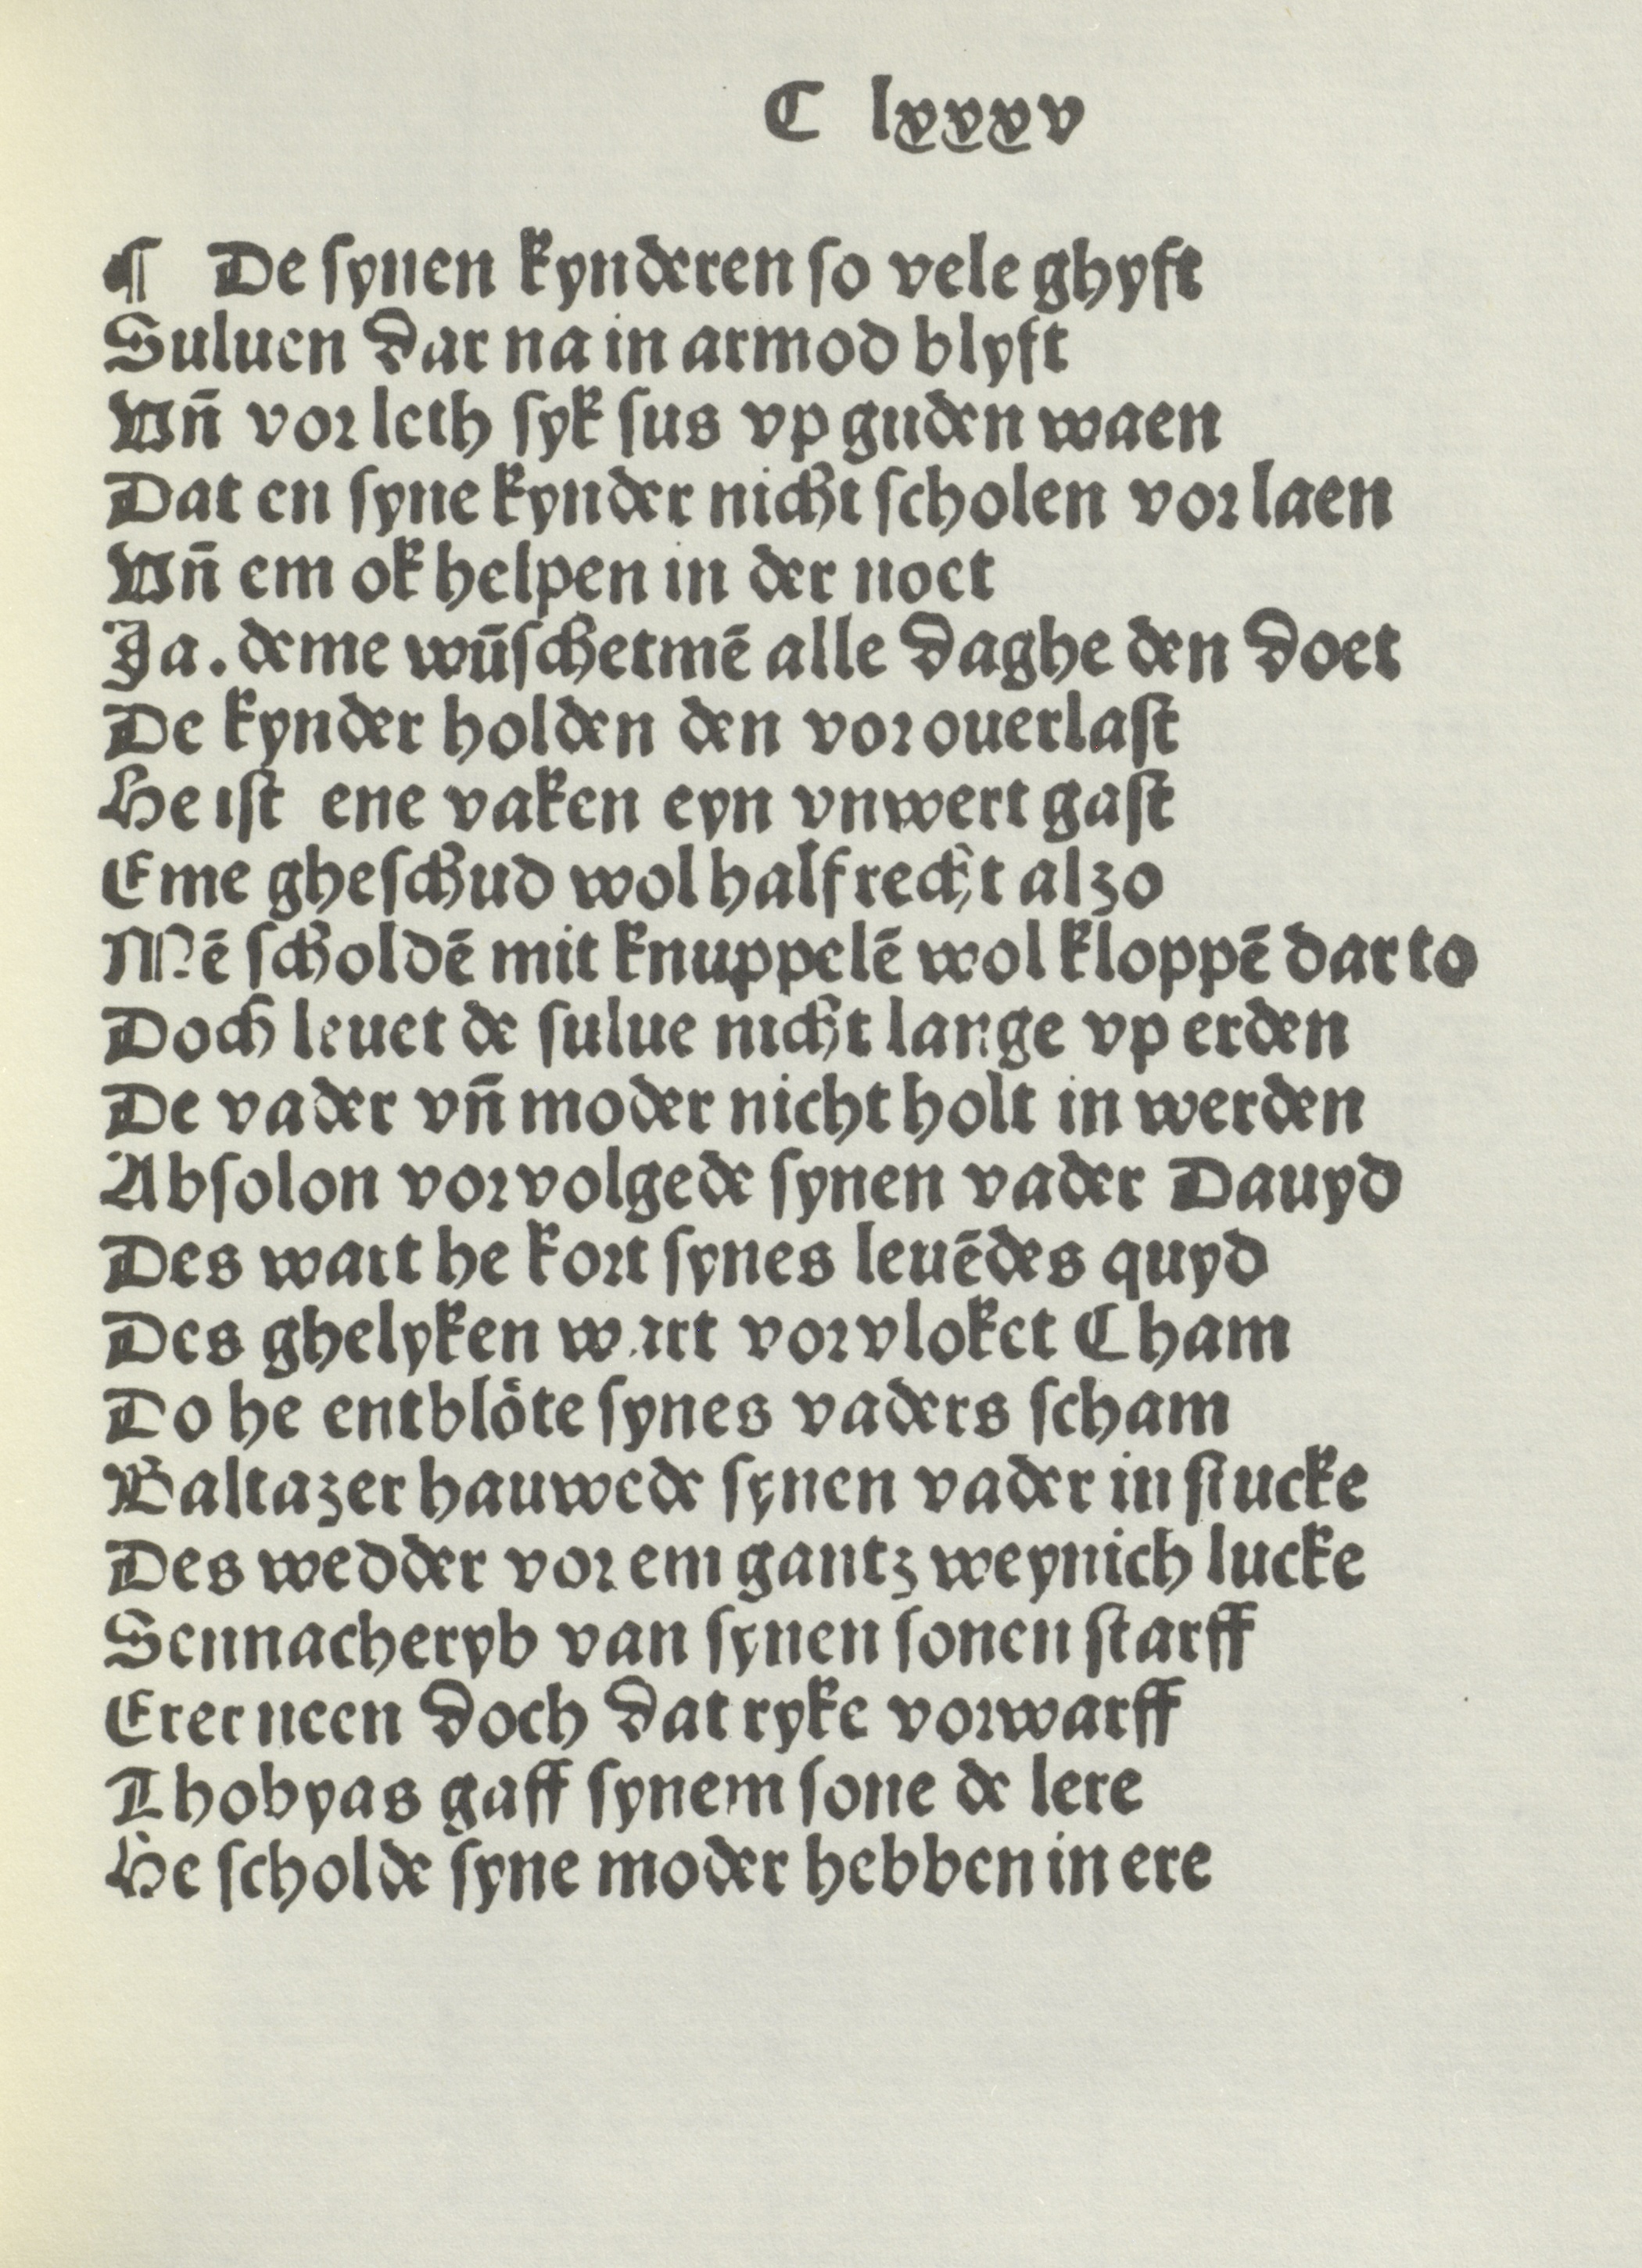 C lxxxv
¶ De ſynen kynderen ſo vele ghyft
Suluen dar na in armod blyft
Vn̄ vor leth ſyk ſus vp guden waen
Dat en ſyne kynder nicht ſcholen vor laen
Vn̄ em ok helpen in der noet
Ja. deme wūſchetmē alle daghe den doet
De kynder holden den vor ouerlaſt
He iſt ene vaken eyn vnwert gaſt
Eme gheſchud wol half recht alzo
Mē ſcholdē mit knuppelē wol kloppē dar to
Doch leuet de ſulue nicht lange vp erden
De vader vn̄ moder nicht holt in werden
Abſolon vorvolgede ſynen vader Dauyd
Des wart he kort ſynes leuēdes quyd
Des ghelyken wart vorvloket Cham
Do he entbloͤte ſynes vaders ſcham
Baltazer hauwede ſynen vader in ſtucke
Des wedder vor em gantz weynich lucke
Sennacheryb van ſynen ſonen ſtarff
Erer neen doch dat ryke vorwarff
Thobyas gaff ſynem ſone de lere
He ſcholde ſyne moder hebben in ere